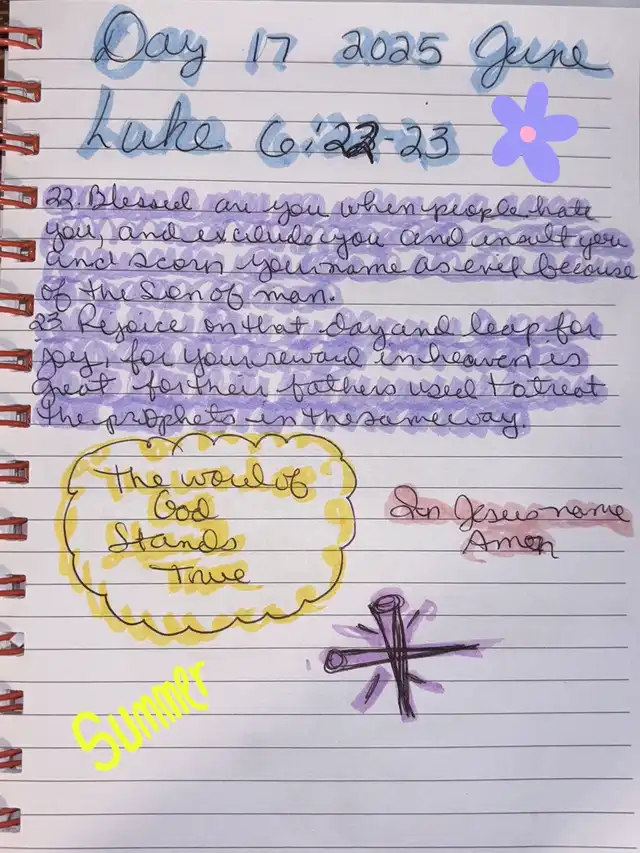 Day 17 2025 June
Luke 6:22-23
22. Blessed are you when people hate
you, and exclude you and insult you
and scorn your name as evil because
of the Son of man.
23 Rejoice on that day and leap for
joy, for your reward in heaven is
great for their fathers used to treat
the prophets in the same way.
The word of
God
Stands
True
In Jesus name
Amen
Summer